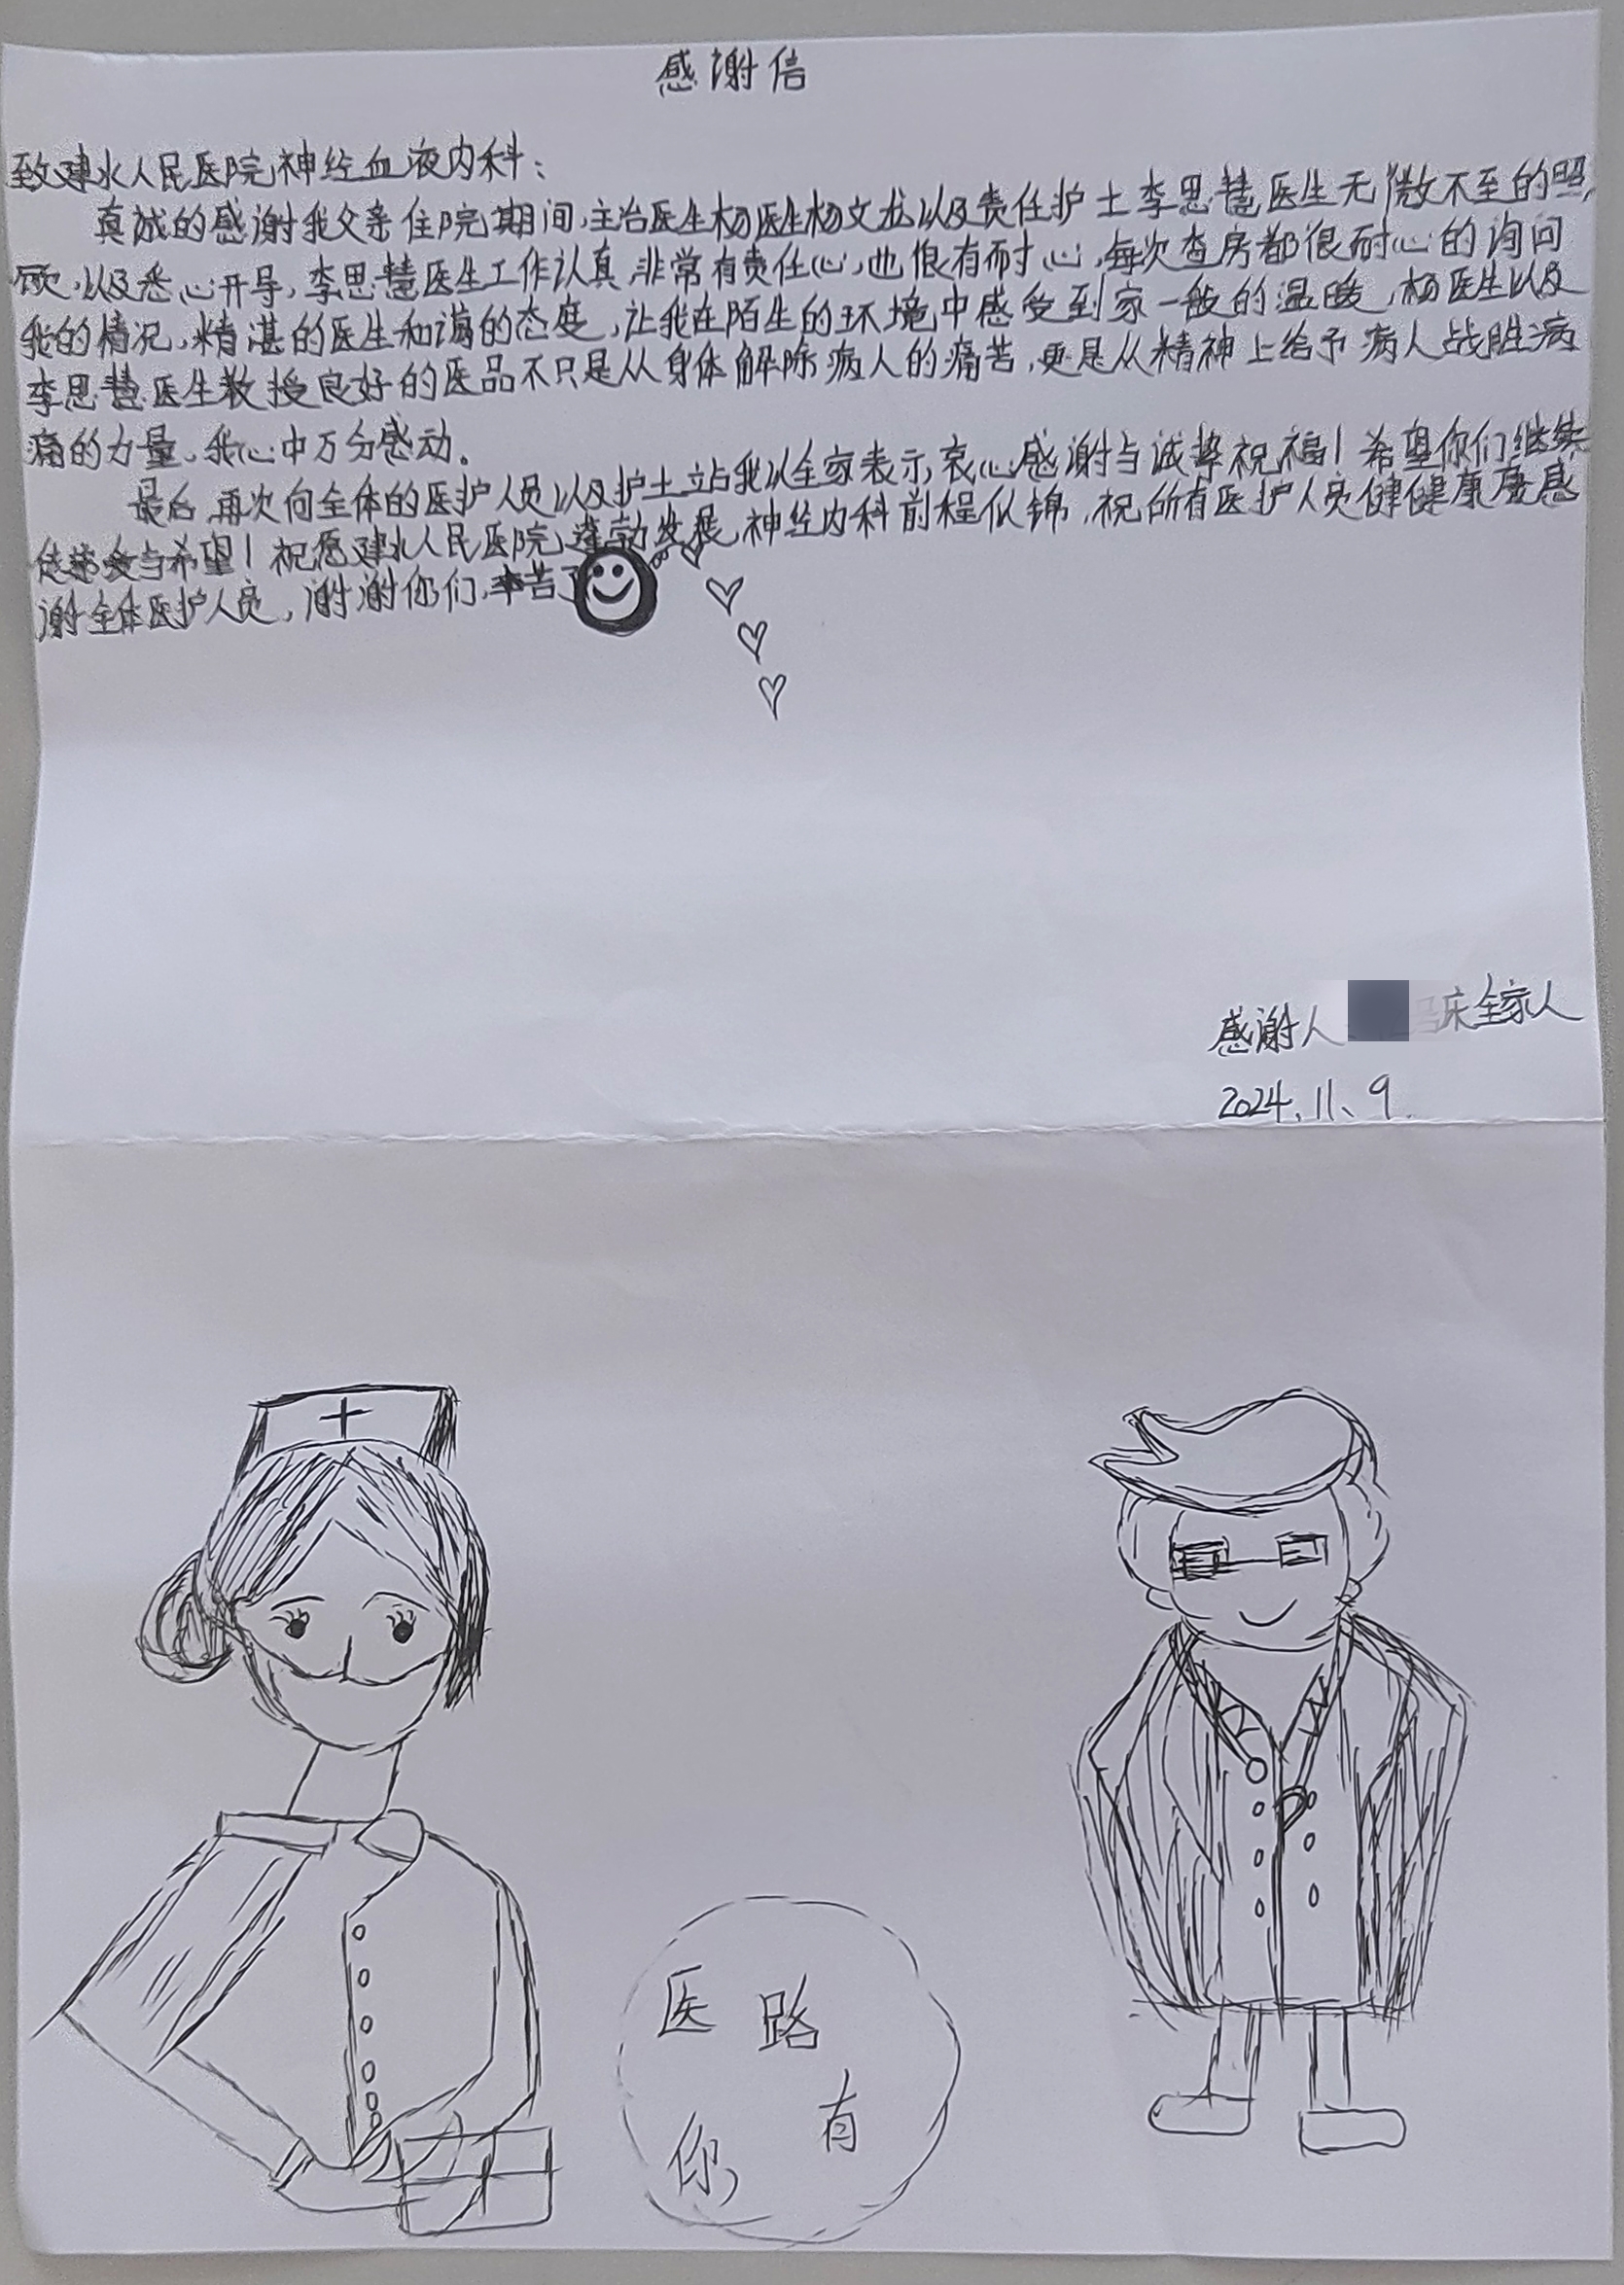 感谢信
致建水人民医院神经血液内科：
真诚的感谢我父亲住院期间，主治医生杨医生杨文龙以及责任护士李思慧医生无微不至的照
顾，以及悉心开导，李思慧医生工作认真，非常有责任心，也很有耐心，每次查房都很耐心的询问
我的情况，精湛的医生和谒的态度，让我在陌生的环境中感受到家一般的温暖，杨医生以及
李思慧医生教授良好的医品不只是从身体解除病人的痛苦，更是从精神上给予病人战胜病
痛的力量，我心中万分感动。
最后，再次向全体的医护人员以及护士站我以全家表示，衷心感谢与诚挚祝福！希望你们继续
传递爱与希望！祝愿建水人民医院蓬勃发展，神经内科前程似锦，祝所有医护人员健健康康感
谢全体医护人员，谢谢你们，辛苦了
感谢人 床全家人
2024、11、9.
医路
有
你